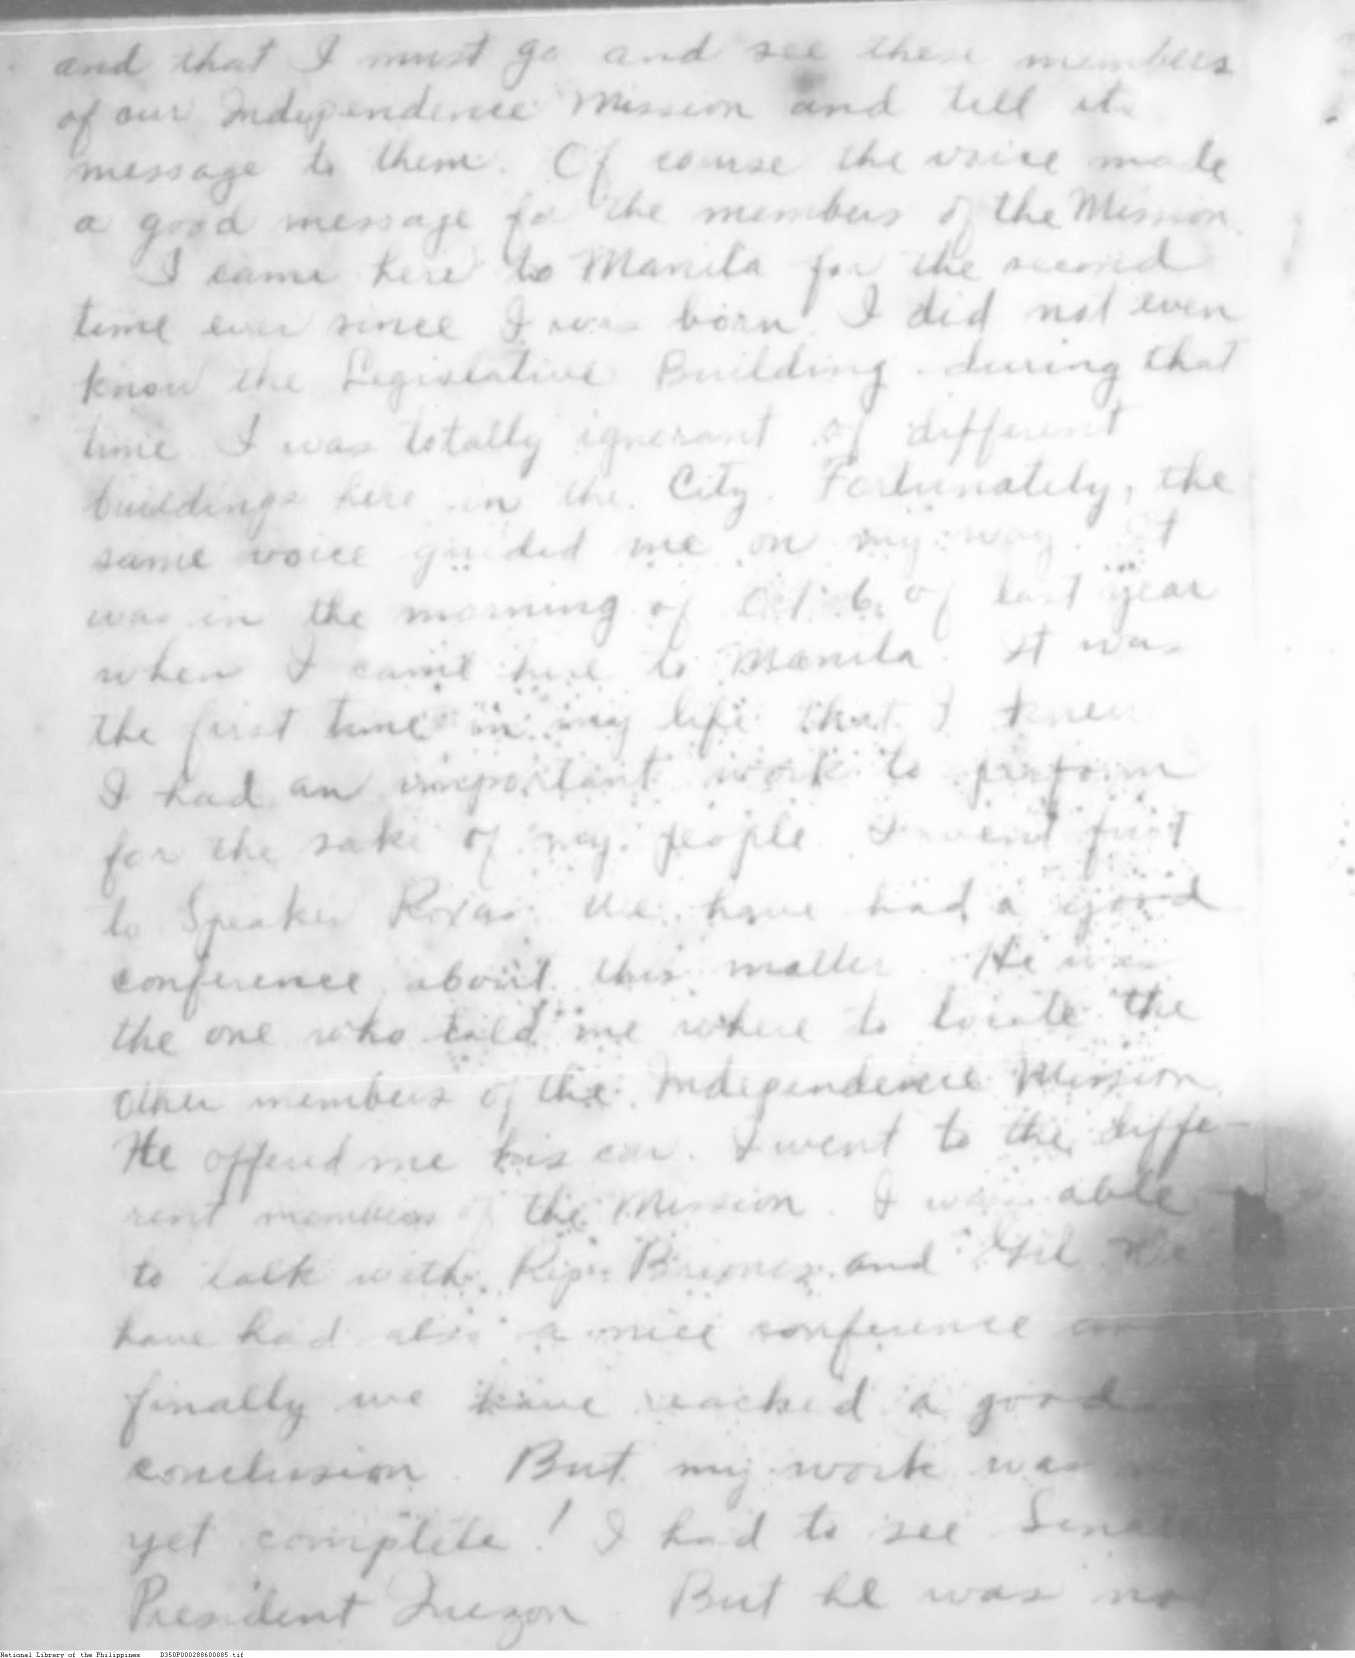 and that I must go and see these members
of our Independence Mission and tell its
message to them. Of course the voice made
a good message for the members of the Mission.
I came here to Manila for the second
time ever since I was born. I did not even
know the Legislative Building during that
time. I was totally ignorant of different
buildings here in the City. Fortunately, the
same voice guided me on my way. It
was in the morning of Oct. 6, of last year
when I came here to Manila. It was
the first time in my life that I knew
I had an important work to perform
for the sake of my people. I went first
to Speaker Roxas. We have had a good
conference about this matter. He was
the one who told me where to locate the
other members of the Independence Mission.
He offered me his car. I went to the diffe-
rent members of the Mission. I was able
to talk with Rep. Briones and Gil. We
have had also a nice conference and
finally we have reached a good
conclusion. But my work was
yet complete! I had to see Senate
President Quezon. But he was not
National Library of the Philippines D350P000288600085.tif